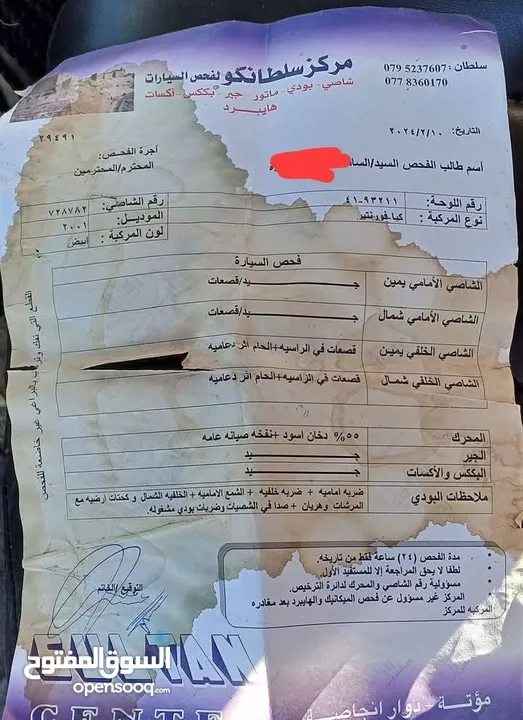 مركز سلطانكو لفحص السيارات
شاصي - بودي - ماتور - جير - بككس - أكسات
هايبرد
سلطان : 079 5237607
077 8360170
التاريخ: ٢٠٢٤/٢/١٠
٢٩٤٩١
أسم طالب الفحص السيد/السا
أجرة الفحص:
المحترم/المحترمين
رقم اللوحة: ٩٣٢١١-٤١
رقم الشاصي: ٧٢٨٧٨٢
نوع المركبة : كيا-فورونتير
الموديل: ٢٠٠١
لون المركبة : ابيض
فحص السيارة
الشاصي الأمامي يمين جـــيد/قصعات
الشاصي الأمامي شمال جـــيد/قصعات
الشاصي الخلفي يمين قصعات في الراسيه+الحام اثر دعاميه
الشاصي الخلفي شمال قصعات في الراسيه+الحام اثر دعاميه
المحرك ٥٥% دخان اسود +نفخه صيانه عامه
الجير جـــيد
البككس والأكسات جـــيد
ملاحظات البودي ضربه اماميه + ضربه خلفيه + الشمع الاماميه + الخلفيه الشمال و كحتات ارضيه مع
المرشات وهريان + صدا في الشصيات وضربات بودي مشغوله.
القطع التي تفك وتركب بالبراغي غير خاضعة للفحص
مدة الفحص (٢٤) ساعة فقط من تاريخه.
لطفا لا يحق المراجعة إلا للمستفيد الأول.
مسؤولية رقم الشاصي والمحرك لدائرة الترخيص.
المركز غير مسؤول عن فحص الميكانيك والهايبرد بعد مغادره
المركبه للمركز
التوقيع/الخاتم
SULTAN
CENTE
السوق المفتوح
opensooq.com
مؤتة - دوار